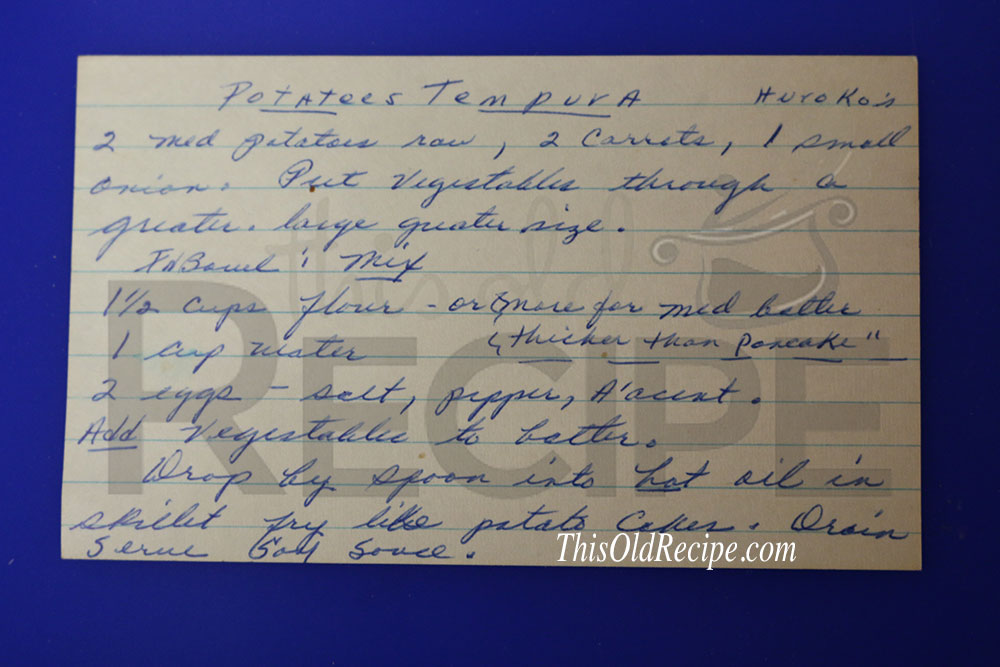 Potatees Tempura Huroko's
2 med potatoes raw, 2 Carrots, 1 small
onion. Put Vegestables through a
greater. large greater size.
In Bowl ; Mix
1 1/2 cups flour - or more for med batter
1 cup water "thicker than pancake"
2 eggs - salt, pepper, A'cent.
Add Vegestables to batter.
Drop by spoon into hot oil in
skillet fry like potato Cakes. Drain
Serve Soy Souce.
ThisOldRecipe.com
this old
RECIPE